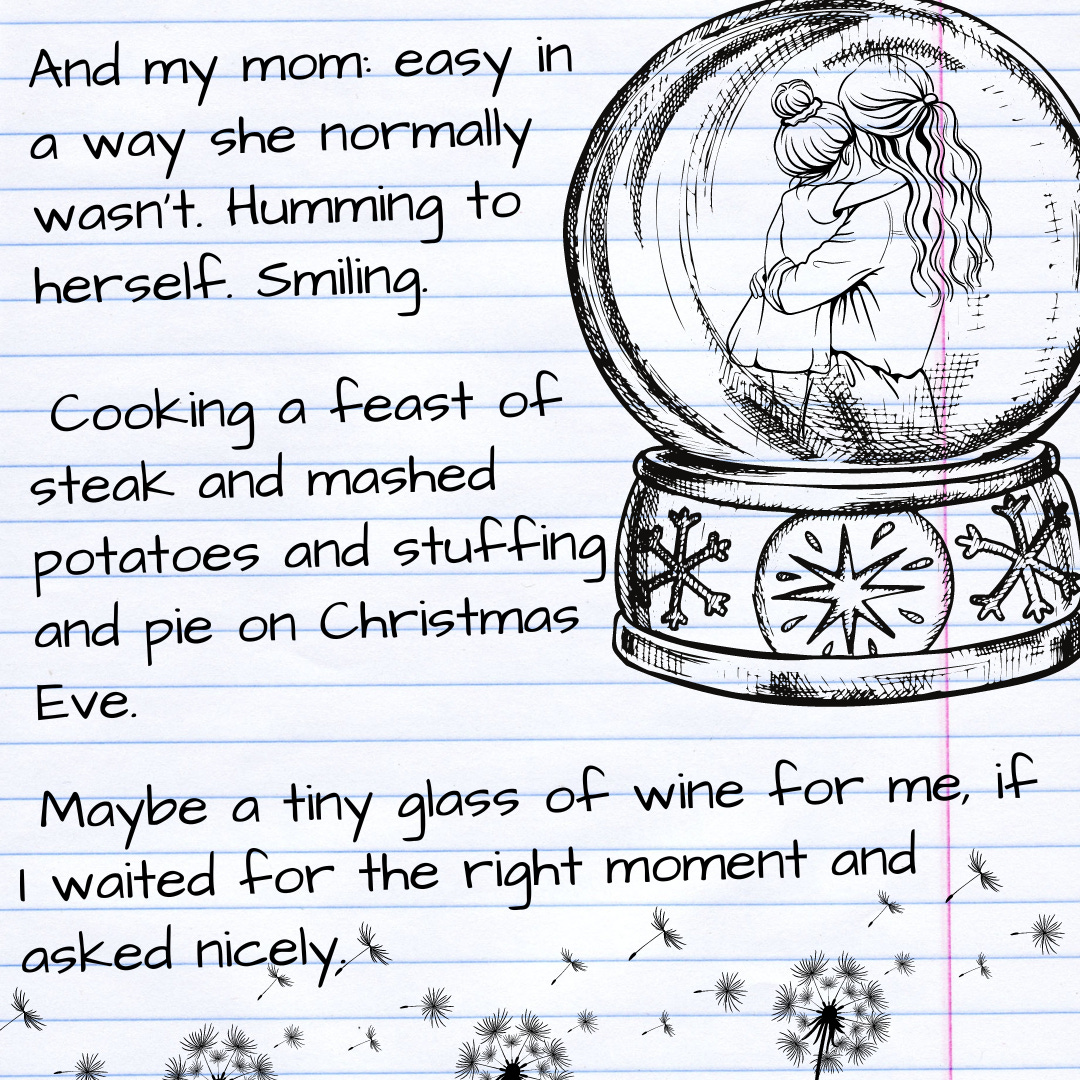 And my mom: easy in
a way she normally
wasn't. Humming to
herself. Smiling.
Cooking a feast of
steak and mashed
potatoes and stuffing
and pie on Christmas
Eve.
Maybe a tiny glass of wine for me, if
I waited for the right moment and
asked nicely.